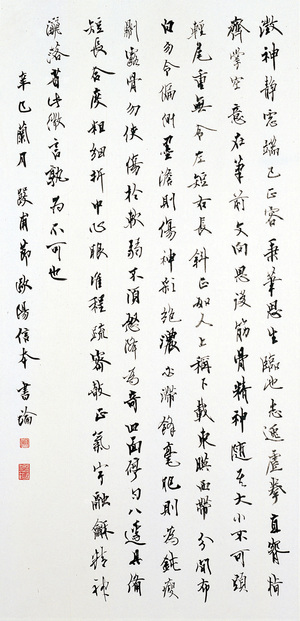 澂神靜慮端己正容秉筆思生臨池志逸虛拳直腕指
齊掌空意在筆前文向思後筋骨精神隨其大小不可頭
輕尾重無令左短右長斜正如人上稱下載東映西帶分間布
白勿令偏側墨澹則傷神彩絕濃必滯鋒毫肥則為鈍瘦
則露骨勿使傷於軟弱不須怒降為奇四面停勻八邊具備
短長合度粗細折中心眼准程疏密欹正氣宇融龢精神
灑落省此微言孰為不可也
辛巳蘭月 甫節歐陽信本書論